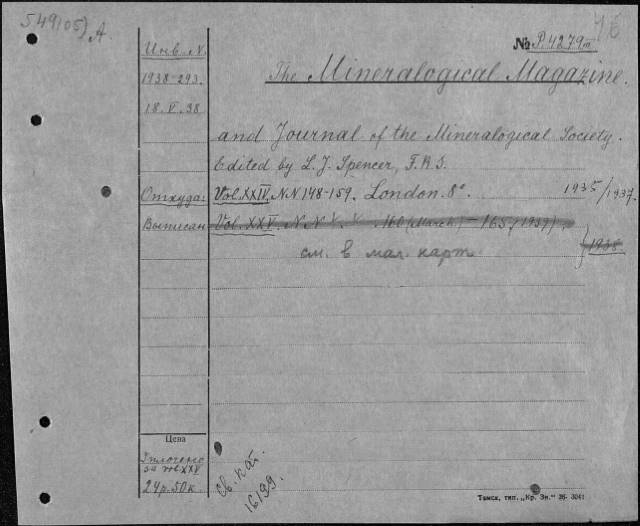 549(05) A.
16
№ P.4279 III
Инв. N.
1938-293.
18. V. 38
The Mineralogical Magazine.
and Journal of the Mineralogical Society.
Edited by L. J. Spencer, F.R.S.
Откуда: Vol. XXIV. N.N 148-159. London. 8°. 1935/1937.
Выписан Vol. XXV. N.N 160 (March) - 165 (1939). 1938
см. в мал. карт.
Цена
Уплочено
за т. XXV
24р. 50к
Св. кат.
16199.
Томск, тип. „Кр. Зн." 36- 3041